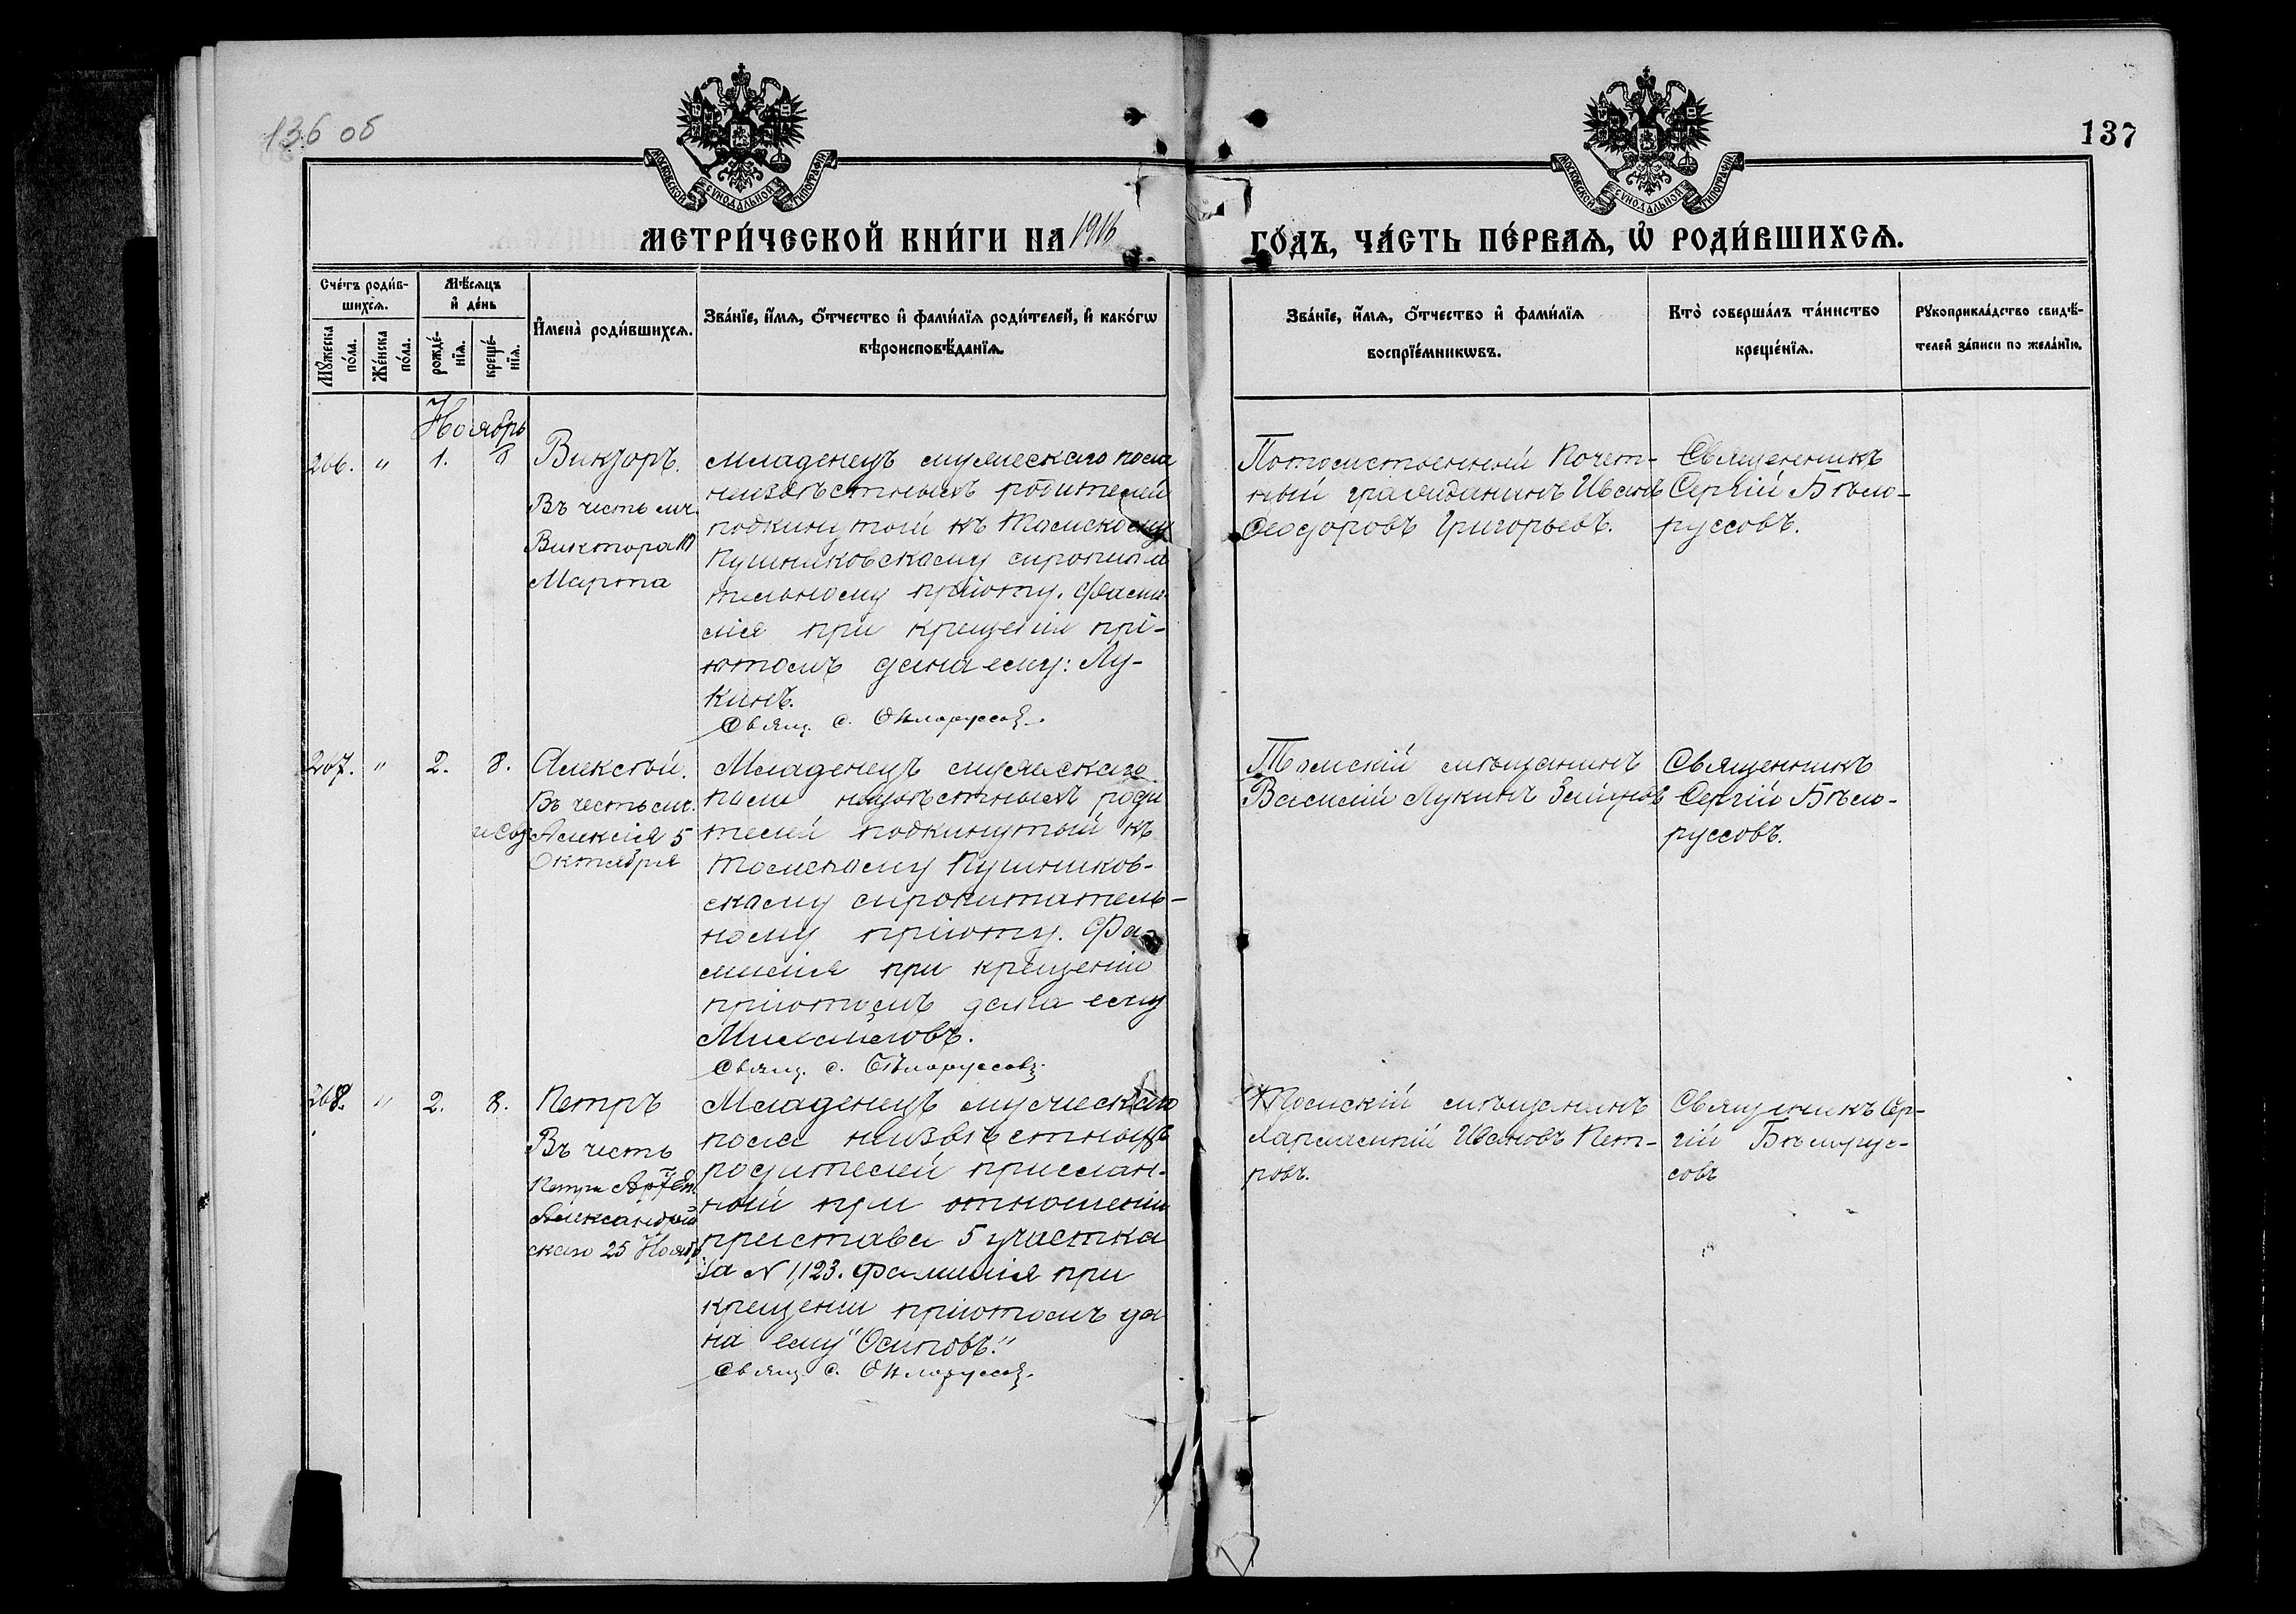 136 об
137
МОСКОВСКОЙ СѴНОДАЛЬНОЙ ТИПОГРАФІИ
МОСКОВСКОЙ СѴНОДАЛЬНОЙ ТИПОГРАФІИ
МЕТРИ́ЧЕСКОЙ КНИ́ГИ НА 1916
ГО́ДЪ, ЧА́СТЬ ПЕ́РВАЯ, Ѡ҆ РОДИ́ВШИХСЯ.
Сче́тъ роди́в-
шихся.
Мѣ́сяцъ
и҆ де́нь
Мꙋ́жеска
по́ла.
Же́нска
по́ла.
рожде́-
нїя.
креще́-
нїя.
И҆мена̀ роди́вшихся.
Зва́нїе, и҆́мя, ѻ҆́тчество и҆ фами́лїя роди́телей, и҆ како́гѡ
вѣроисповѣ́данїя.
Зва́нїе, и҆́мя, ѻ҆́тчество и҆ фами́лїя
воспрїе́мникѡвъ.
Кто̀ соверша́лъ та́инство
креще́нїя.
Рꙋкоприкла́дство свидѣ́-
телей за́писи по жела́нїю.
Ноябрь
266. " 1. 8
Викторъ.
Въ честь мч.
Виктора 10
Марта
Младенецъ мужескаго пола
неизвѣстныхъ родителей
подкинутый къ Томскому
Пушниковскому сиропита
тельному пріюту. Фами-
лія при крещеніи прі-
ютомъ дана ему: Лу-
кинъ.
Свящ. С. Бѣлоруссовъ.
Потомственный Почет-
ный гражданинъ Иванъ
Ѳеодоровъ Григорьевъ.
Священникъ
Сергій Бѣло-
руссовъ.
267. " 2. 8.
Алексѣй.
Въ честь мт.
Алексія 5
Октября
Младенецъ мужескаго
пола неизвѣстныхъ роди
телей подкинутый къ
Томскому Пушников-
скому сиропитатель-
ному пріюту. Фа-
милія при крещеніи
пріютомъ дана ему
Михайловъ.
Свящ. С. Бѣлоруссовъ.
Томскій мѣщанинъ
Василій Лукинъ
Священникъ
Сергій Бѣло-
руссовъ.
268. " 2. 8.
Петръ
Въ честь
Петра Арх Еп.
Александрій
скаго 25 Нояб
Младенецъ мужескаго
пола неизвѣстныхъ
родителей прислан-
ный при отношеніи
пристава 5 участка
за N 1,123. Фамилія при
крещеніи пріютомъ да
на ему "Осиповъ."
Свящ. С. Бѣлоруссовъ.
Томскій мѣщанинъ
Харлампій Ивановъ Пет-
ровъ.
Священникъ Сер-
гій Бѣлорус-
совъ